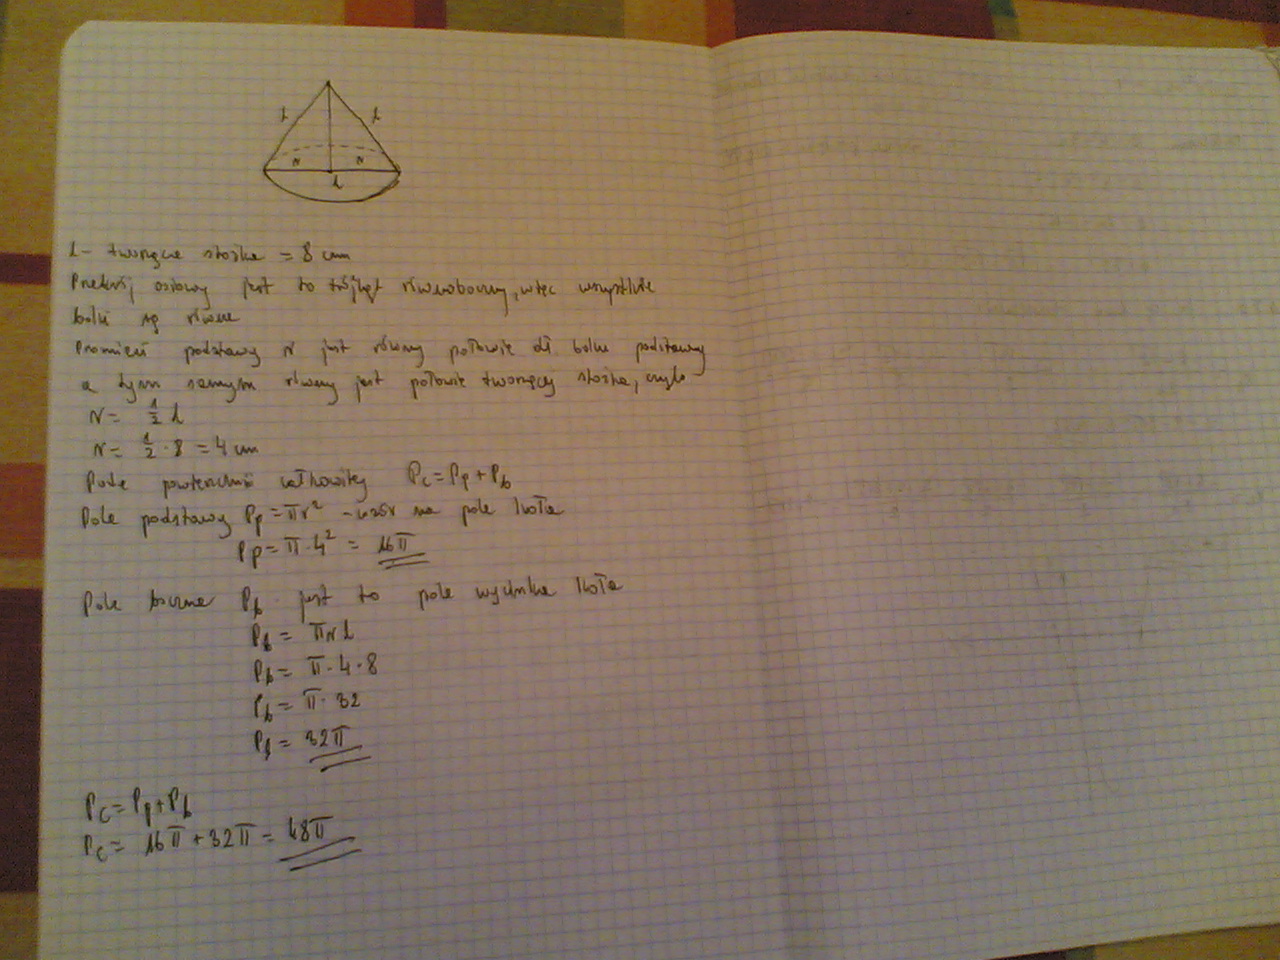 l l
r r
l
l - tworząca stożka = 8 cm
Przekrój osiowy jest to trójkąt równoboczny, więc wszystkie
boki są równe
Promień podstawy r jest równy połowie dł boku podstawy
a tym samym równy jest połowie tworzącej stożka, czyli
r = 1/2 l
r = 1/2 · 8 = 4 cm
Pole powierzchni całkowitej Pc = Pp + Pb
Pole podstawy Pp = πr² - wzór na pole koła
Pp = π · 4² = 16π
Pole boczne Pb jest to pole wycinka koła
Pb = πrl
Pb = π · 4 · 8
Pb = π · 32
Pb = 32π
Pc = Pp + Pb
Pc = 16π + 32π = 48π